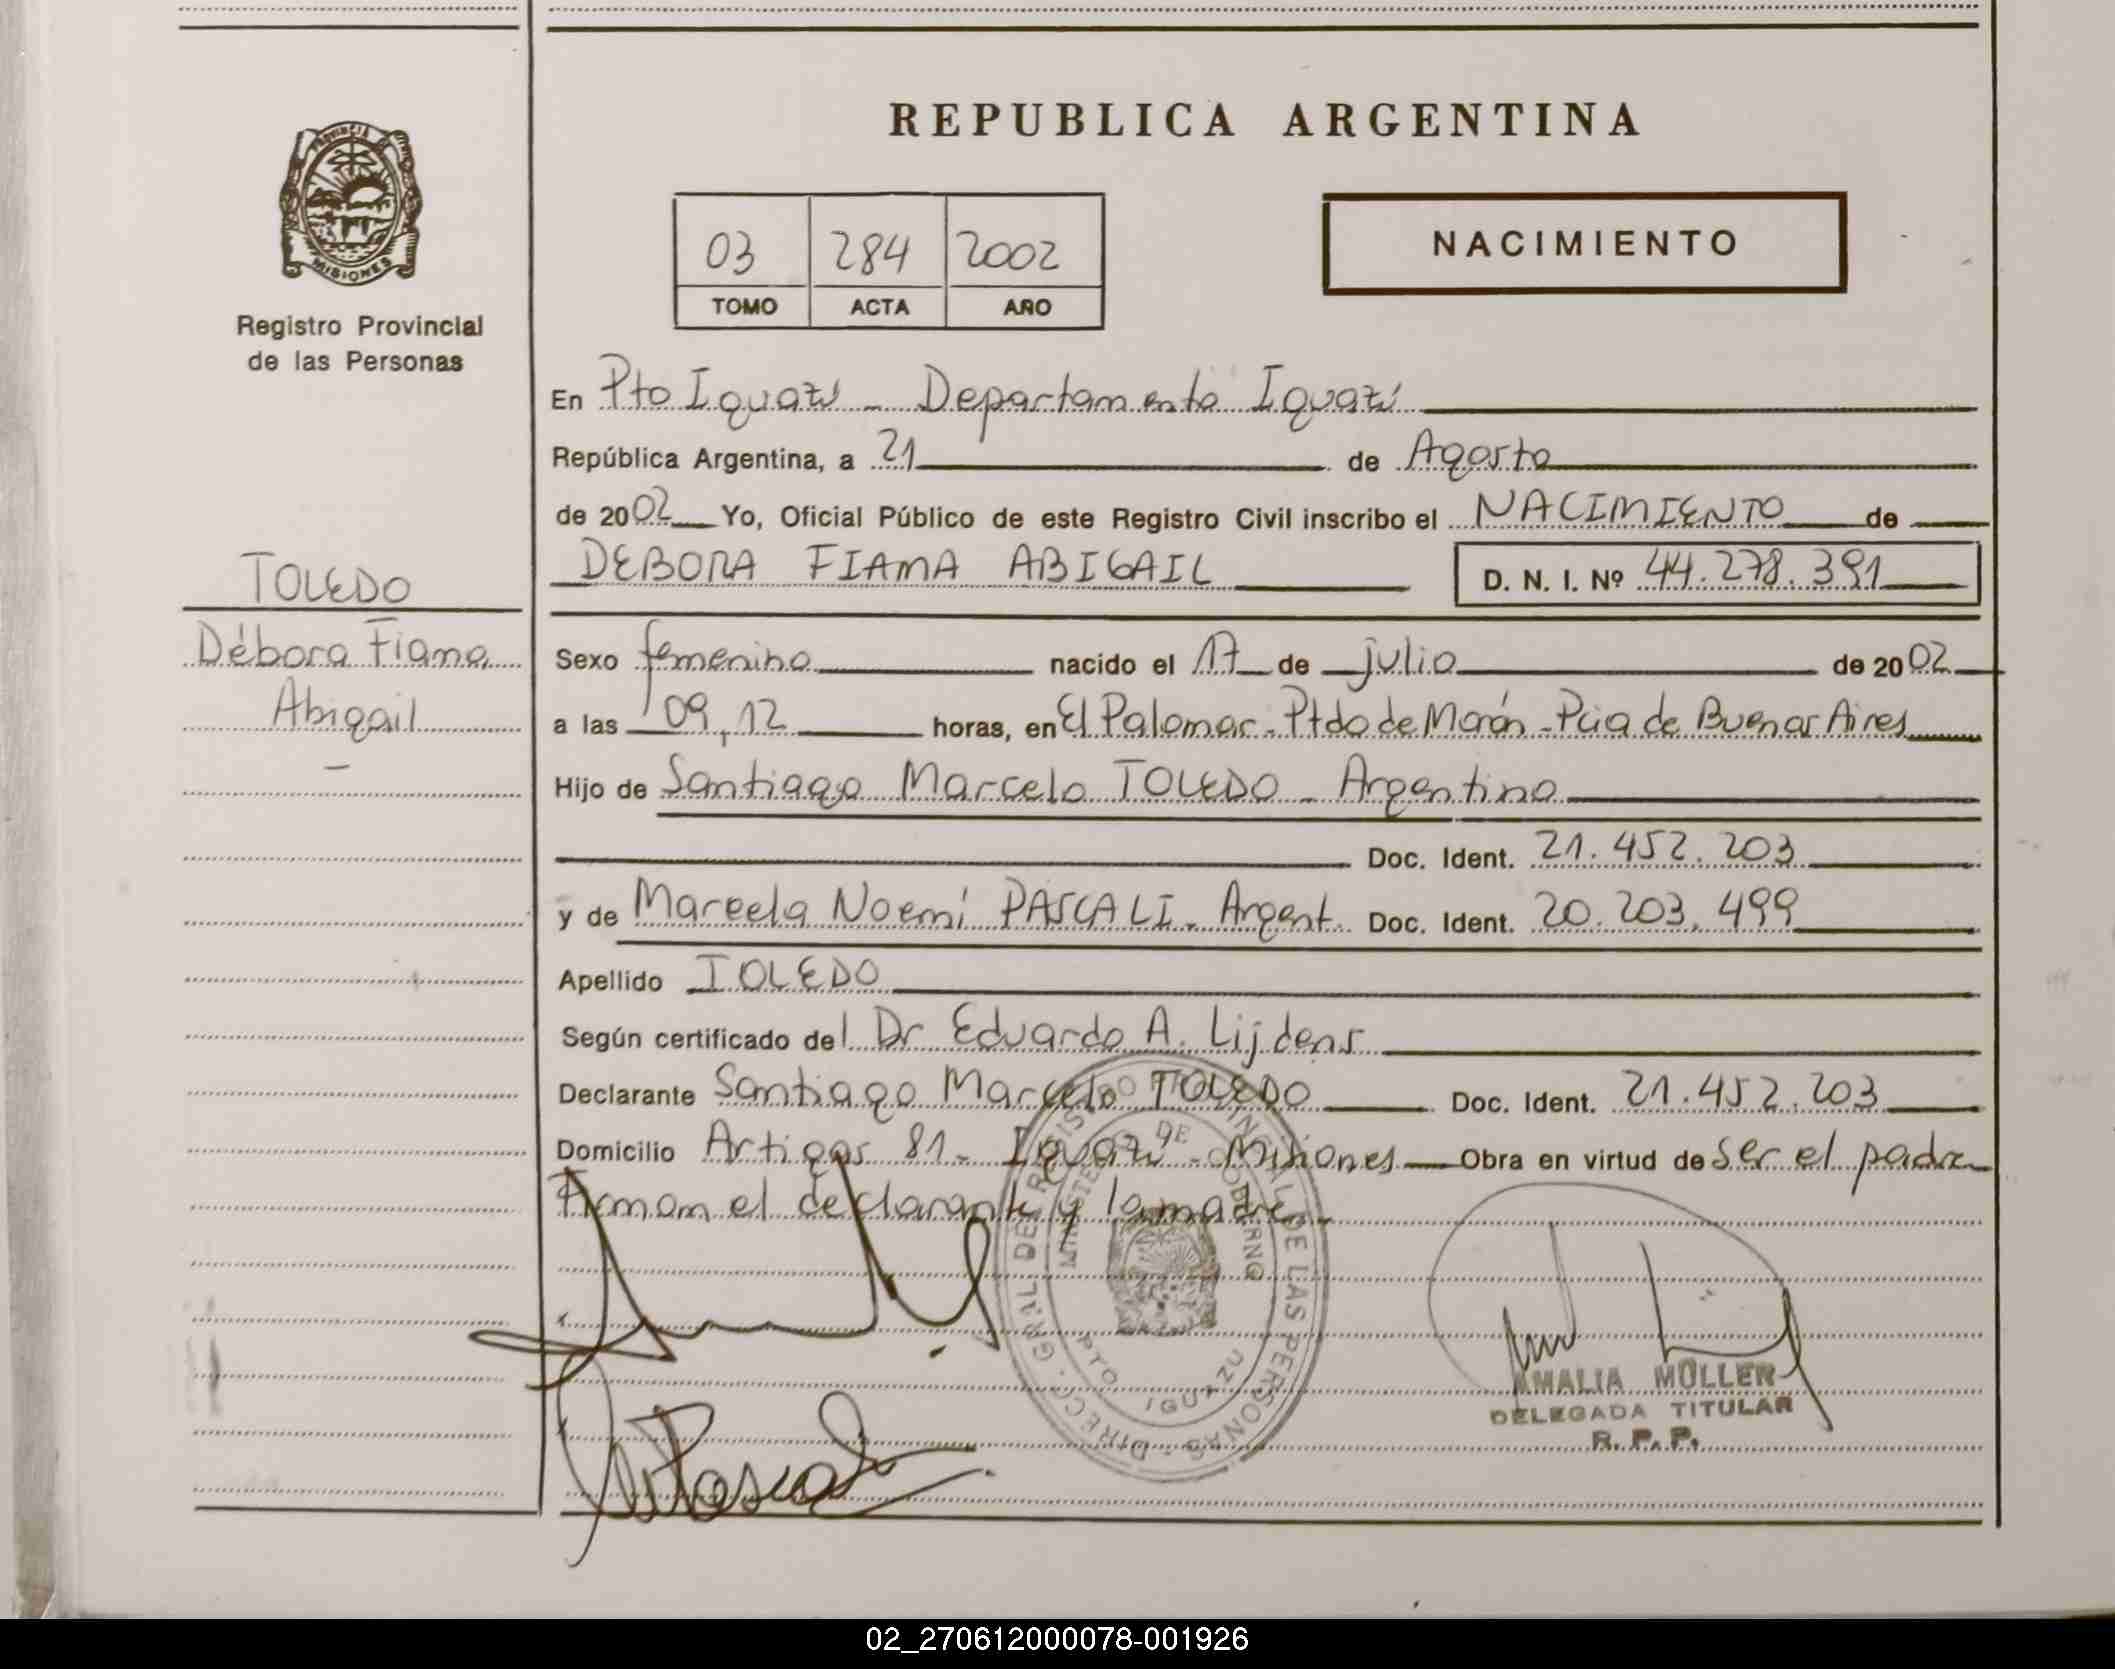 REPUBLICA ARGENTINA
PROVINCIA
MISIONES
Registro Provincial
de las Personas
03 284 2002
TOMO ACTA AÑO
NACIMIENTO
En Pto Iguazú - Departamento Iguazú
República Argentina, a 21 de Agosto
de 2002 Yo, Oficial Público de este Registro Civil inscribo el NACIMIENTO de
DEBORA FIAMA ABIGAIL D. N. I. Nº 44.278.391
TOLEDO
Débora Fiama
Abigail
-
Sexo femenino nacido el 17 de julio de 2002
a las 09,12 horas, en El Palomar - Ptdo de Morón - Pcia de Buenos Aires
Hijo de Santiago Marcelo TOLEDO - Argentino
Doc. Ident. 21.452.203
y de Marcela Noemí PASCALI - Argent. Doc. Ident. 20.203.499
Apellido TOLEDO
Según certificado del Dr Eduardo A. Lijdens
Declarante Santiago Marcelo TOLEDO Doc. Ident. 21.452.203
Domicilio Artigas 81 - Iguazú - Misiones Obra en virtud de ser el padre
Firman el declarante y la madre -
DIRECC. GRAL DEL REGISTRO PROVINCIAL DE LAS PERSONAS
MINISTERIO DE GOBIERNO
PTO IGUAZU
AMALIA MULLER
DELEGADA TITULAR
R. P. P.
02_270612000078-001926